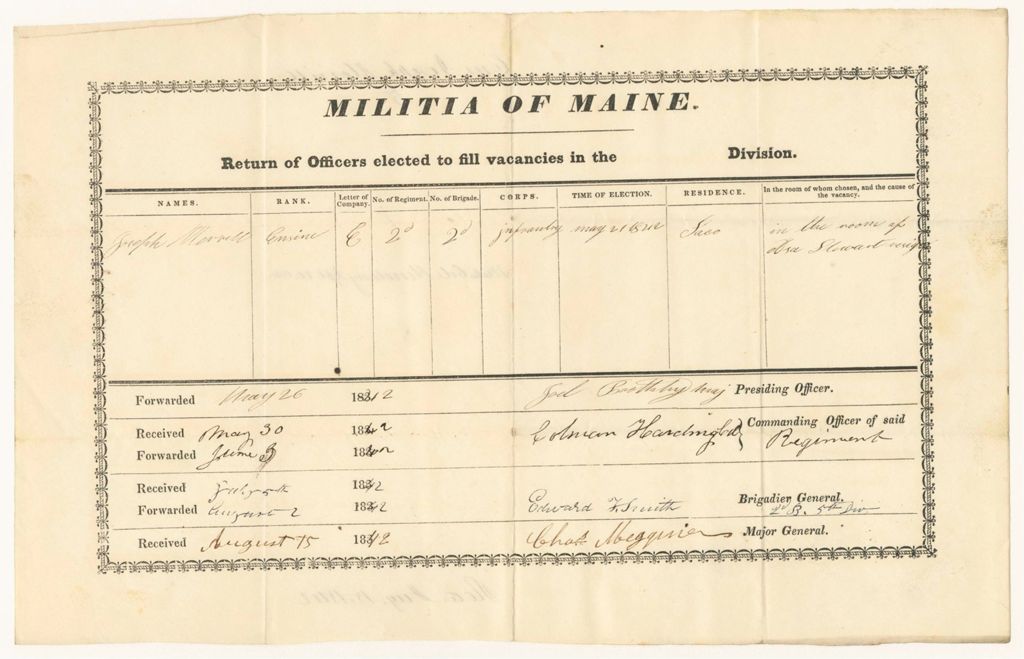 MILITIA OF MAINE.
Return of Officers elected to fill vacancies in the Division.
NAMES. RANK. Letter of Company. No. of Regiment. No. of Brigade. CORPS. TIME OF ELECTION. RESIDENCE. In the room of whom chosen, and the cause of the vacancy.
Joseph Merrill Ensine E 2d 2d infantry may 21 1842 Saco in the room of
Stewart
Forwarded May 26 1842 Joel Boothby maj Presiding Officer.
Received May 30 1842 Colman Harding Commanding Officer of said
Forwarded June 1842 Regiment
Received July 1842
Forwarded August 2 1842 Edward F. Smith Brigadier General.
2d B. 5th Div
Received August 15 1842 Major General.